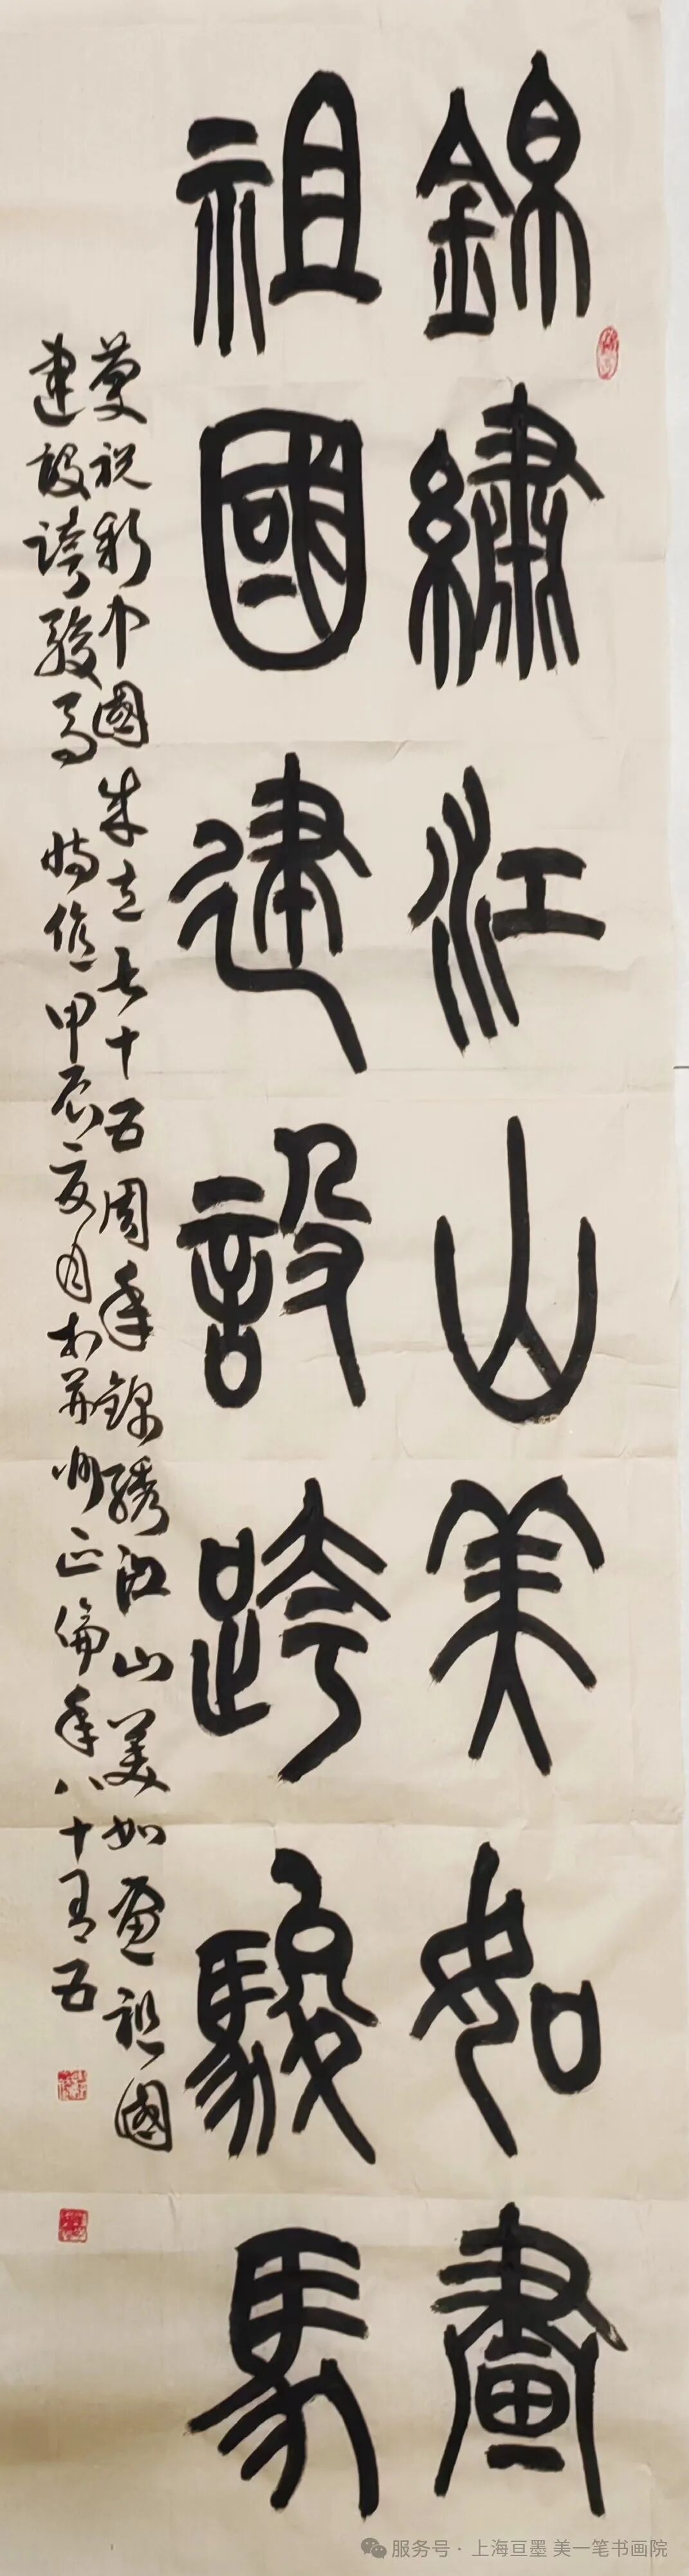 錦繡江山美如畫
祖國建設跨駿馬
慶祝新中國成立七十五周年錦繡江山美如畫祖國
建設誇駿馬 時值甲辰夏月於并州正倫年八十有五
服务号·上海亘墨 美一笔书画院